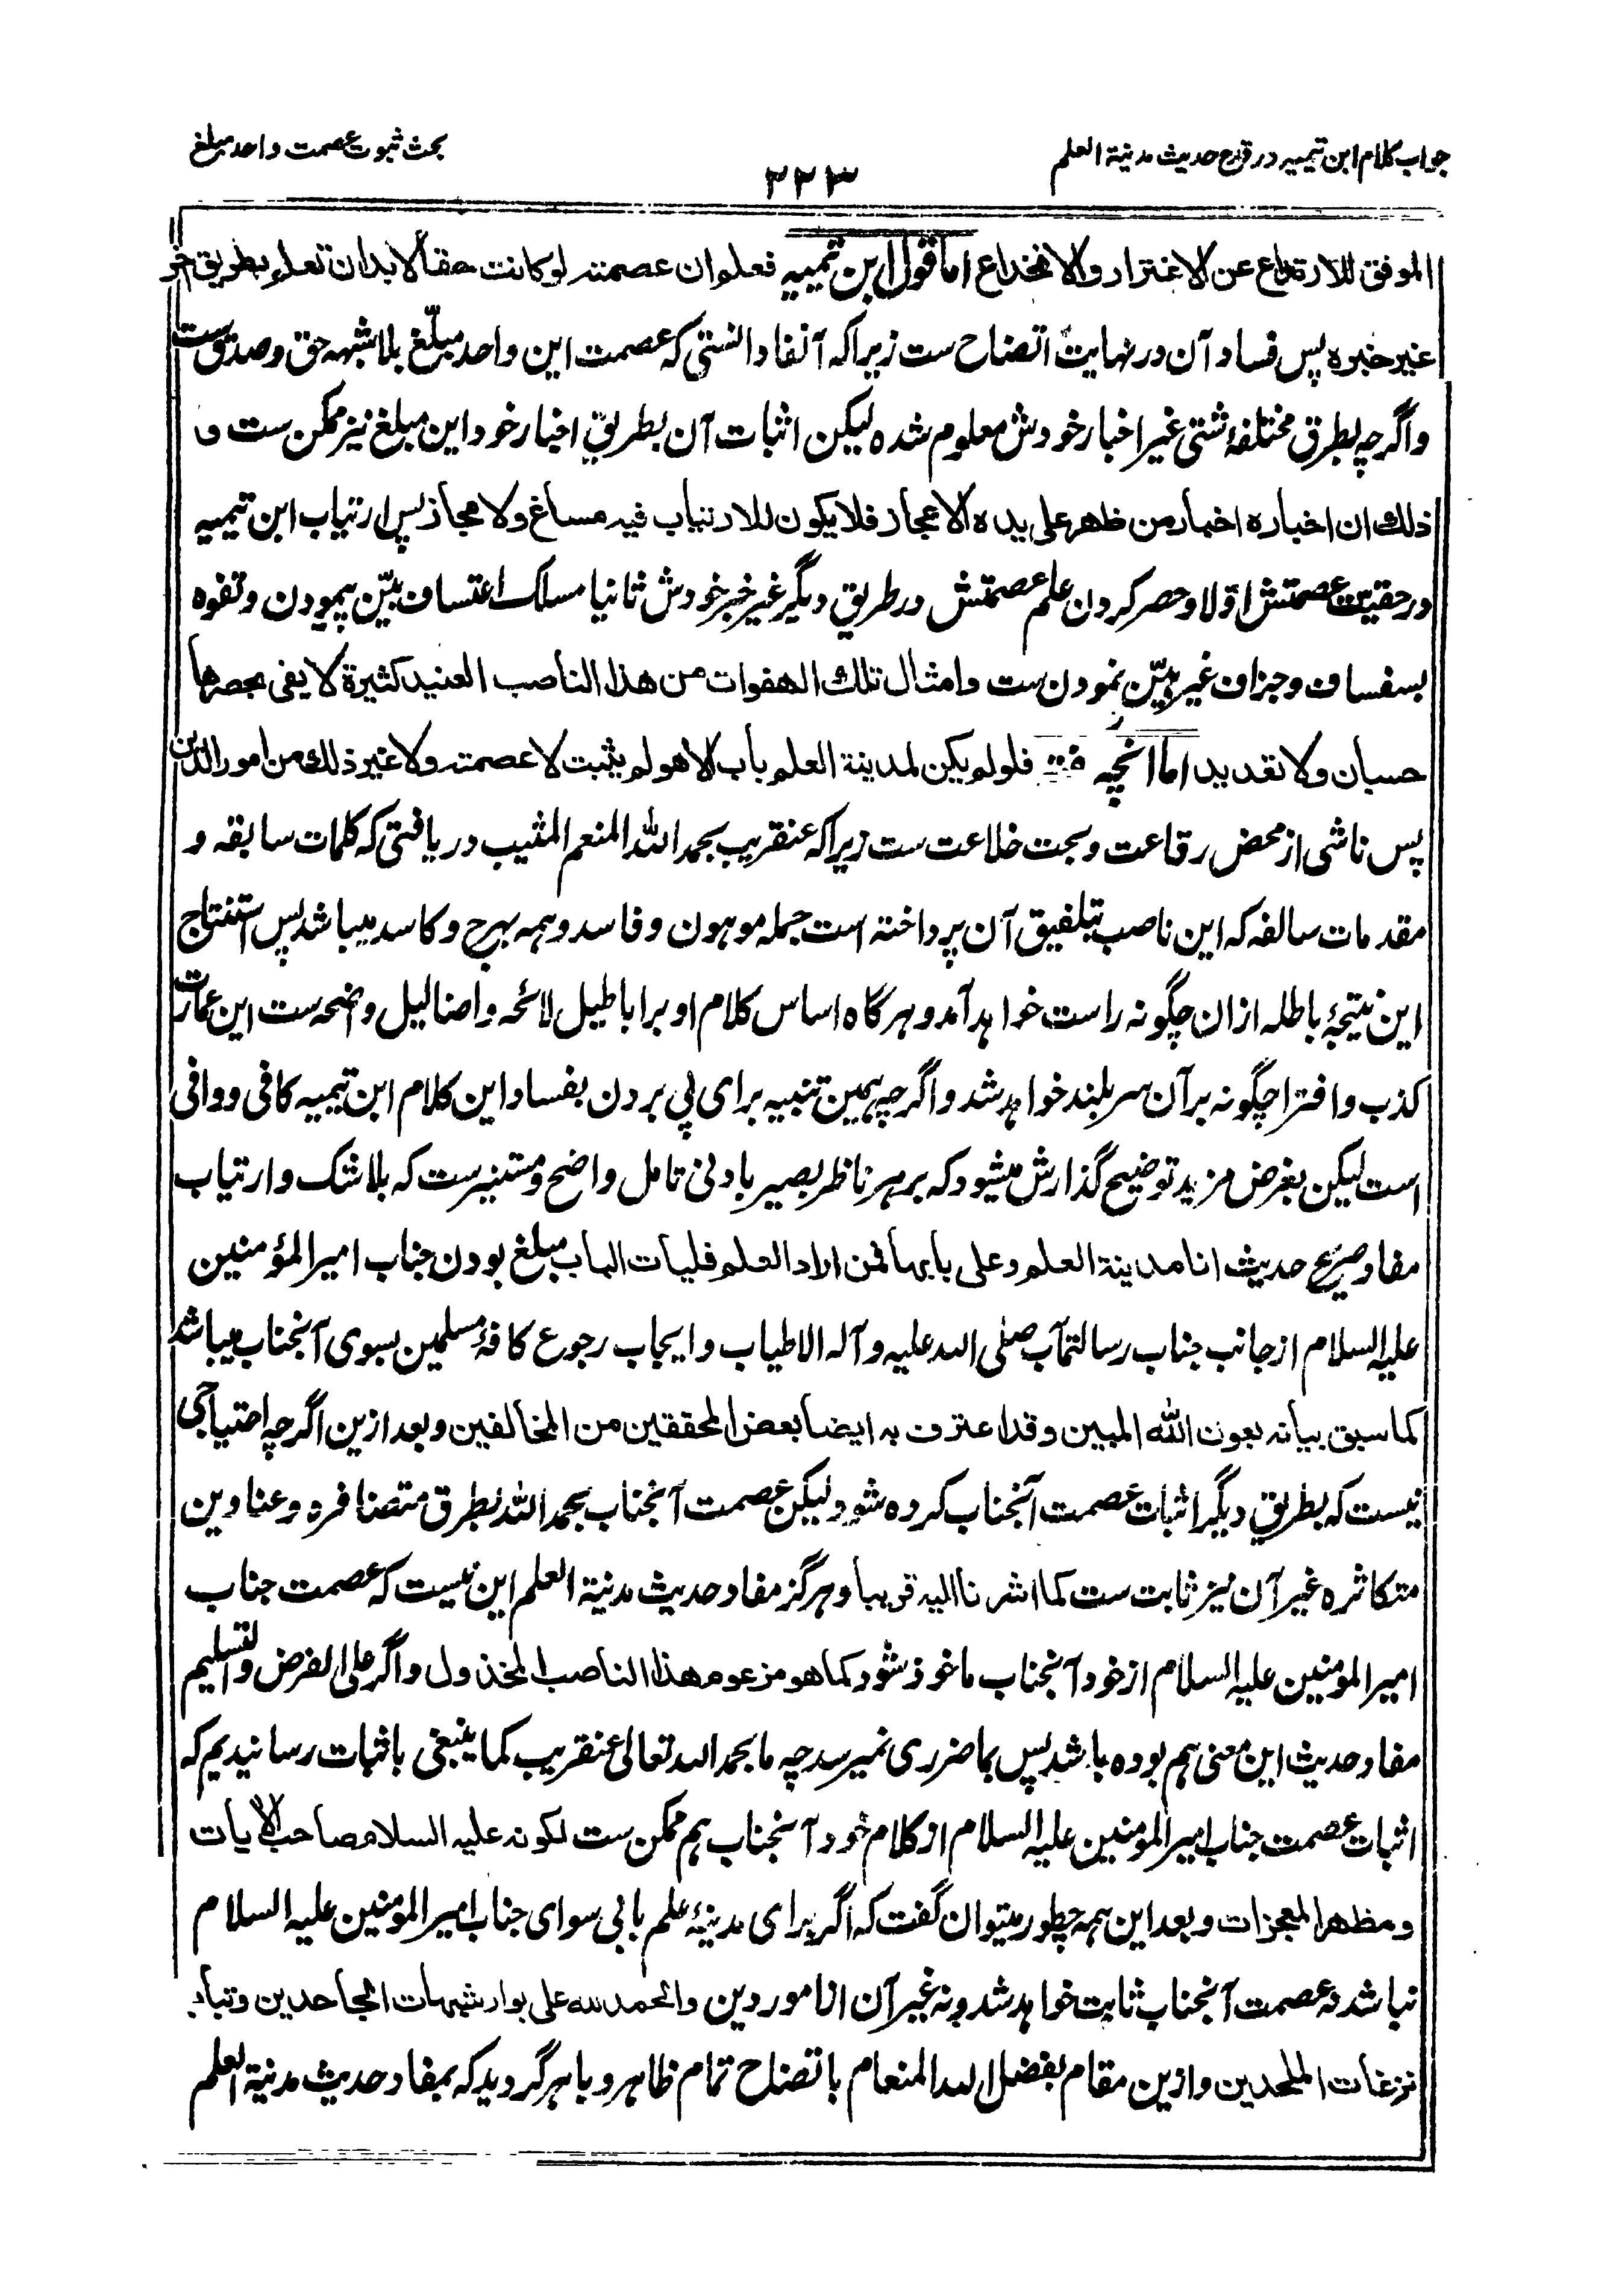 جواب کلام ابن تیمیه در قدح حدیث مدینة العلم
۳۲۳
بحث ثبوت عصمت واحد مبلغ
الموفق للارتداع عن الاغترار والانخداع اما قول ابن تیمیه فعلم ان عصمته لو کانت حقا لابد ان تعلم بطریق آخر
غیر خبره پس فساد آن در نهایت اتضاح ست زیرا که آنفا دانستی که عصمت این واحد مبلّغ بلا شبهه حق و صدق ست
و اگرچه بطرق مختلفۀ شتی غیر اخبار خودش معلوم شده لیکن اثبات آن بطریق اخبار خود این مبلغ نیز ممکن ست و
ذلك ان اخباره اخبار من ظهر علی یده الاعجاز فلا یکون للارتیاب فیه مساغ ولا مجاز پس ارتیاب ابن تیمیه
در حقیت عصمتش اولا و حصر کردن علم عصمتش در طریق دیگر غیر خبر خودش ثانیا مسلک اعتساف بیّن پیمودن و تفوه
بسفساف و جزاف غیر هیّن نمودن ست وامثال تلك الهفوات من هذا الناصب العنید کثیرة لا یفی بحصرها
حسبان ولا تعدید اما آنچه فلو لم یکن لمدینة العلم باب الا هو لم یثبت لا عصمته ولا غیر ذلك من امور الدین
پس ناشی از محض رقاعت و بحت خلاعت ست زیرا که عنقریب بحمد الله المنعم المثیب دریافتی که کلمات سابقه و
مقدمات سالفه که این ناصب بتلفیق آن پرداخته است جمله موهون و فاسد و همه بهرج و کاسد میباشد پس استنتاج
این نتیجۀ باطله ازان چگونه راست خواهد آمد و هرگاه اساس کلام او بر اباطیل لائحه و اضالیل واضحه ست این عمارت
کذب و افترا چگونه بر آن سر بلند خواهد شد و اگرچه همین تنبیه برای پی بردن بفساد این کلام ابن تیمیه کافی و وافی
است لیکن بغرض مزید توضیح گذارش میشود که بر هر ناظر بصیر بادنی تامل واضح و مستنیر ست که بلا شک و ارتیاب
مفاد صریح حدیث انا مدینة العلم وعلی بابها فمن اراد العلم فلیات الباب مبلغ بودن جناب امیر المؤمنین
علیه السلام از جانب جناب رسالتمآب صلی الله علیه و آله الاطیاب و ایجاب رجوع کافۀ مسلمین بسوی آنجناب میباشد
کما سبق بیانه بعون الله المبین وقد اعترف به ایضا بعض المحققین من المخالفین و بعد ازین اگرچه احتیاجی
نیست که بطریق دیگر اثبات عصمت آنجناب کرده شود لیکن عصمت آنجناب بحمد الله بطرق متضافره و عناوین
متکاثره غیر آن نیز ثابت ست کما اشرنا الیه قریبا و هرگز مفاد حدیث مدینة العلم این نیست که عصمت جناب
امیر المومنین علیه السلام از خود آنجناب ماخوذ شود کما هو مزعوم هذا الناصب المخذول و اگر علی الفرض والتسلیم
مفاد حدیث این معنی هم بوده باشد پس بما ضرری نمیرسد چه ما بحمد الله تعالی عنقریب کما ینبغی باثبات رسانیدیم که
اثبات عصمت جناب امیر المومنین علیه السلام از کلام خود آنجناب هم ممکن ست لکونه علیه السلام صاحب الآیات
ومظهر المعجزات و بعد این همه چطور میتوان گفت که اگر برای مدینۀ علم بابی سوای جناب امیر المومنین علیه السلام
نباشد نه عصمت آنجناب ثابت خواهد شد و نه غیر آن از امور دین والحمد لله علی بوار شبهات الجاحدین وتباب
نزغات الملحدین و ازین مقام بفضل الله المنعام باتضاح تمام ظاهر و باهر گردید که بمفاد حدیث مدینة العلم